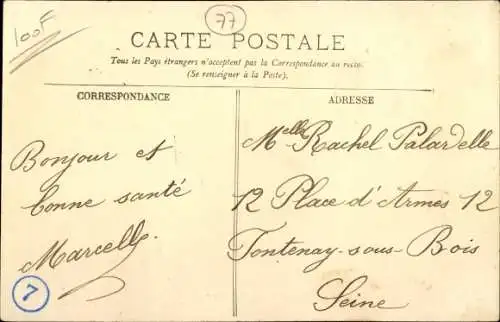 100F
77
CARTE POSTALE
Tous les Pays étrangers n'acceptent pas la Correspondance au recto.
(Se renseigner à la Poste).
CORRESPONDANCE
Bonjour et
bonne santé
Marcelle
7
ADRESSE
Melle Rachel Palardelle
12 Place d'Armes 12
Fontenay-sous-Bois
Seine